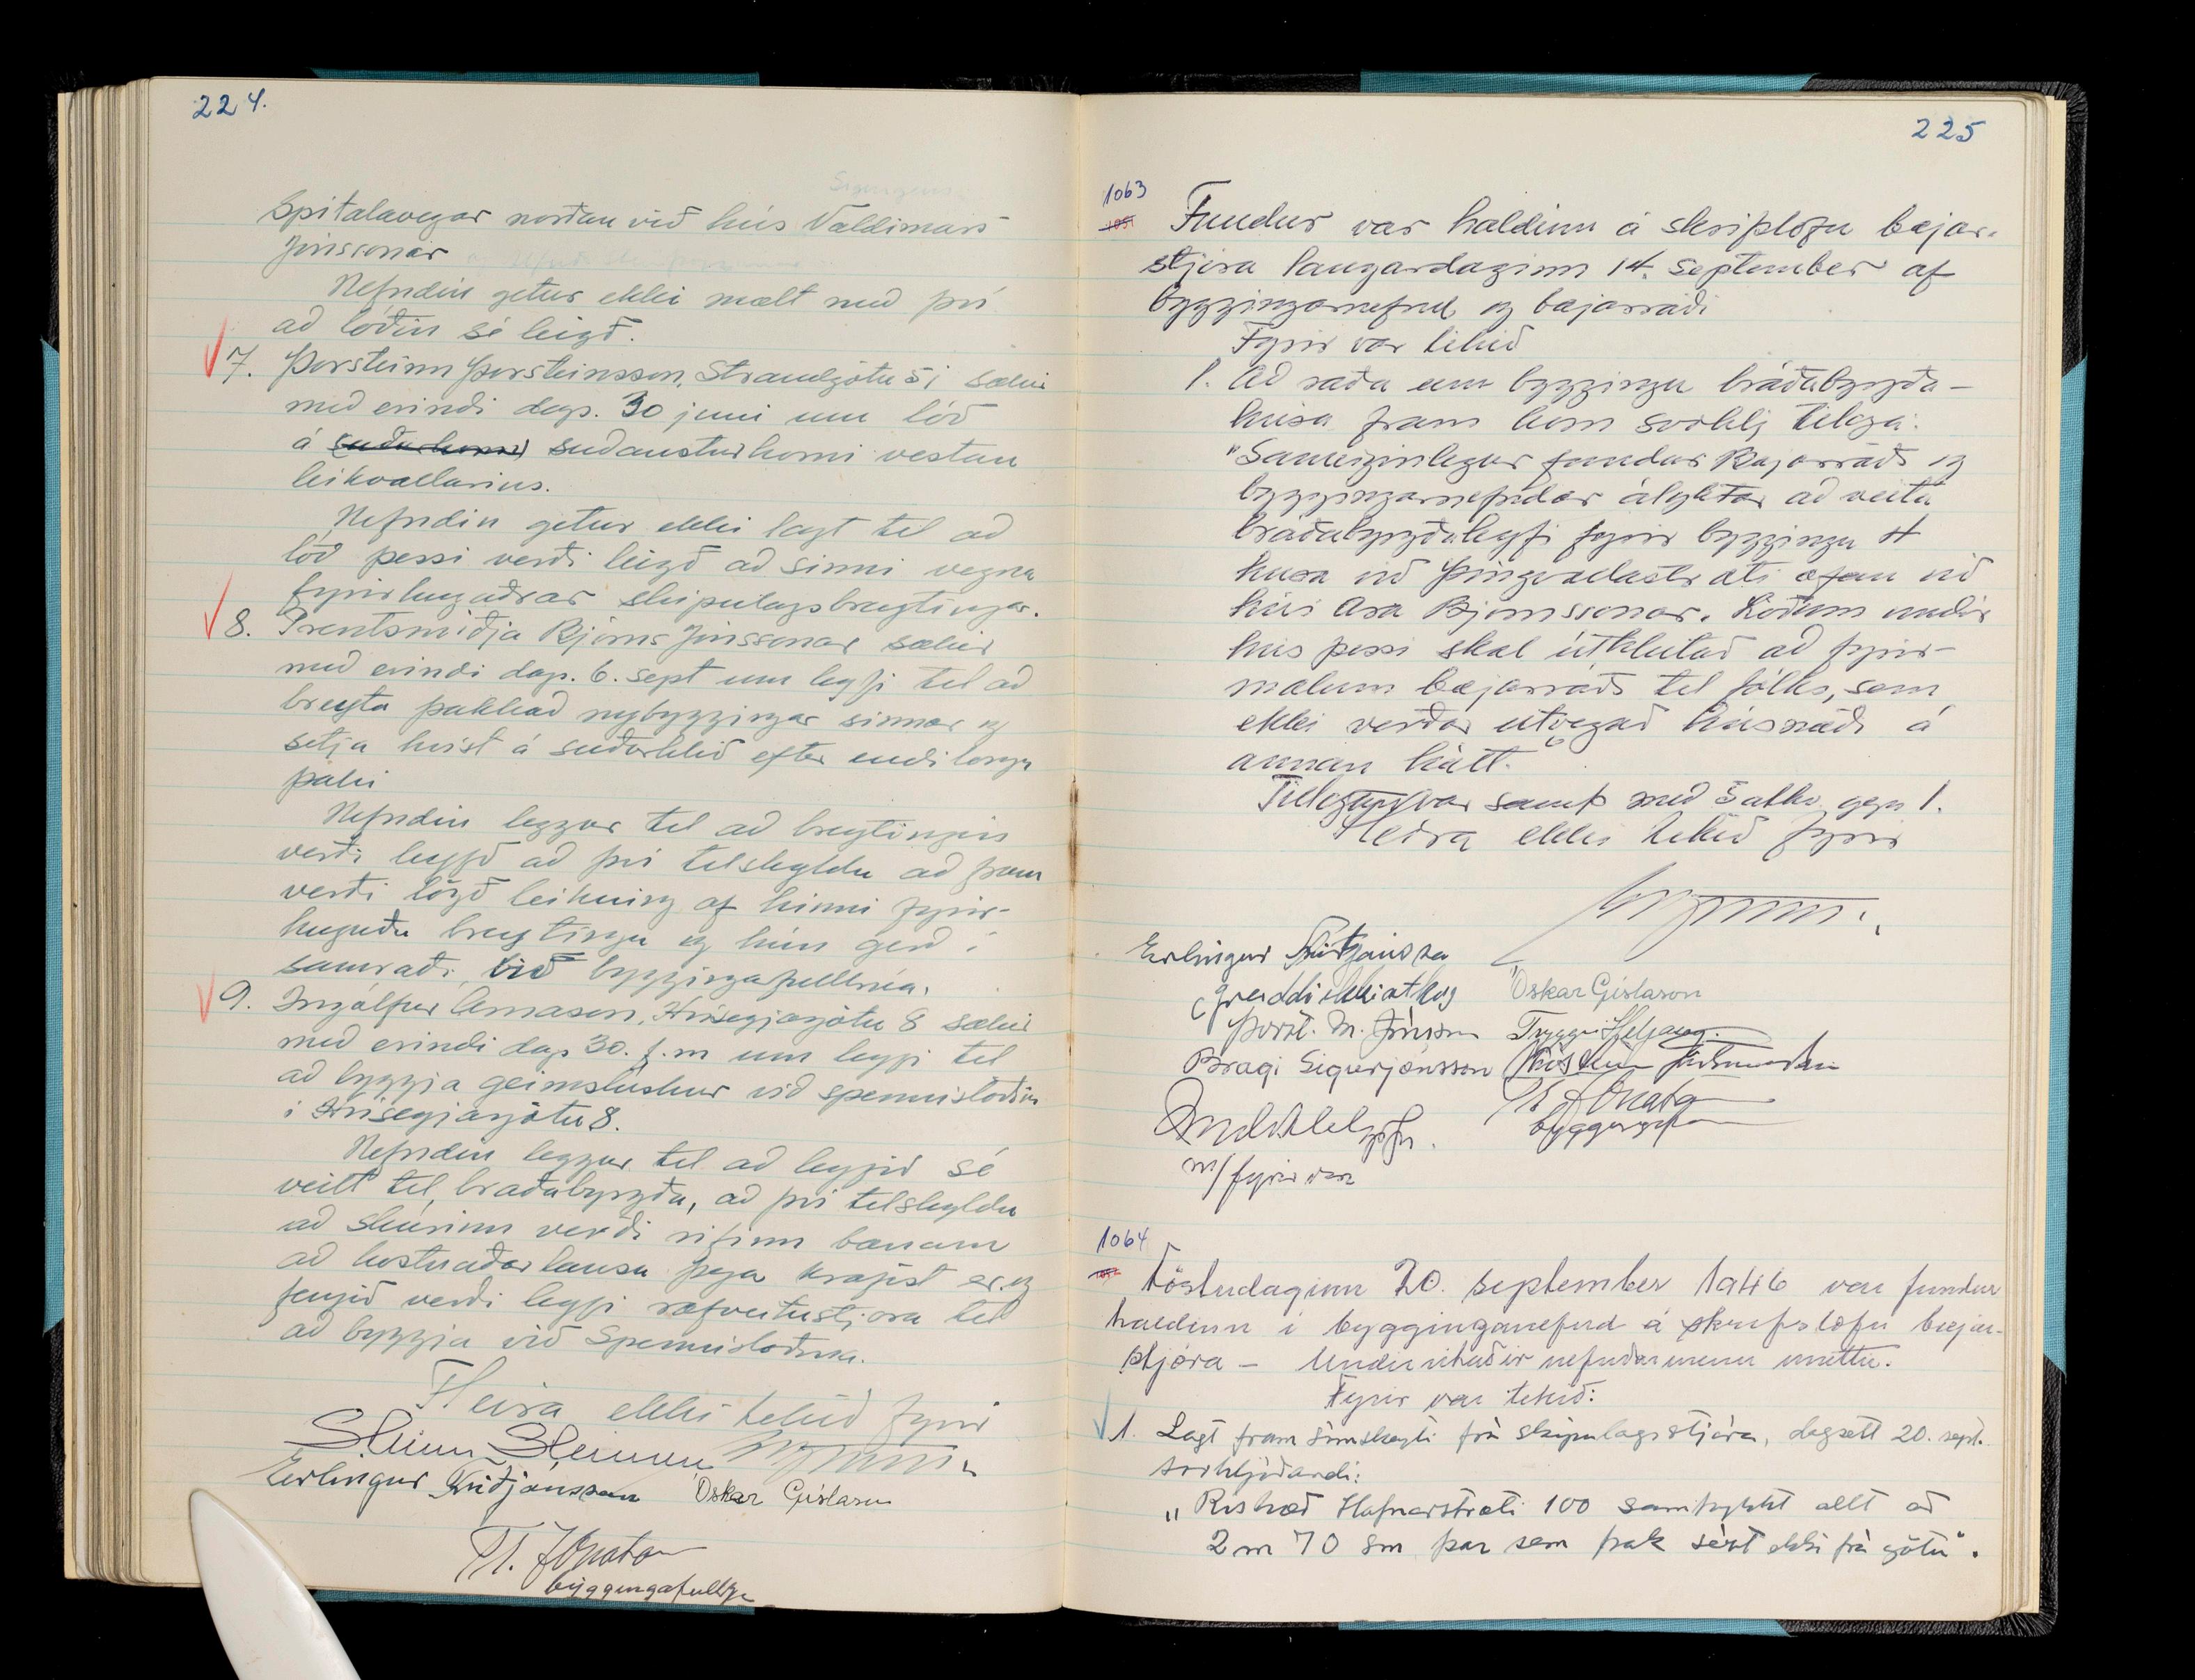 224.
Spitalavegar norðan við hús Valdimars
Jónssonar
Nefndin getur ekki mælt með því
að lóðin sé leigð.
7. Þorsteinn Þorsteinsson, Strandgötu 51 sækir
með erindi dags. 30 juni um lóð
á suðurhorni suðausturhorni vestan
leikvallarins.
Nefndin getur ekki lagt til að
lóð þessi verði leigð að sinni vegna
fyrirhugaðrar skipulagsbreytingar.
8. Prentsmiðja Björns Jónssonar sækir
með erindi dags. 6. sept um leyfi til að
breyta þakhæð nybyggingar sinnar og
setja kvist á suðurhlið eftir endilöngu
þaki
Nefndin leggur til að breytingin
verði leyfð að því tilskyldu að fram
verði lögð teikning af hinni fyrir-
huguðu breytingu og hún gerð í
samráði við byggingafulltrúa.
9. Ingólfur Arnason, Hríseyjargötu 8 sækir
með erindi dags 30. f.m um leyfi til
að byggja geimsluskur við spennistöðina
i Hríseyjargötu 8.
Nefndin leggur til að leyfið sé
veitt til bráðabyrgða, að því tilskyldu
að skúrinn verði rifinn bænum
að kostnaðarlausu þegar krafist er og
fengið verði leyfi rafveitustjora til
að byggja við Spennistöðina.
Fleira ekki tekið fyrir
Steinn Steinsen
Erlingur Friðjónsson Óskar Gíslason
byggingafulltr
225
1063
Fundur var haldinn á skrifstofu bæjar-
stjóra laugardaginn 14. september af
byggingarnefnd og bæjarráði
Fyrir var tekið
1. Að ræða um byggingu bráðabyrgða-
húsa fram kom svohlj tillaga:
"Sameiginlegur fundur Bæjarráðs og
byggingarnefndar ályktar að veita
bráðabyrgðaleyfi fyrir byggingu 4
husa við Þingvallastræti ofan við
hús Ara Björnssonar. Lóðum undir
hús þessi skal úthlutað að fyrir-
mælum bæjarráðs til fólks, sem
ekki verður útvegað húsnæði á
annan hátt."
Tillagan var samþ með 5 atkv. gegn 1.
Fleira ekki tekið fyrir
Erlingur Friðjónsson
(greiddi ekki atkv) Óskar Gíslason
Þorst. M. Jónsson Tryggvi Helgason
Bragi Sigurjónsson
m/ fyrirvara
1064
Föstudaginn 20. september 1946 var fundur
haldinn í bygginganefnd á skrifstofu bæjar-
stjóra – Undirritaðir nefndarmenn mættu.
Fyrir var tekið:
1. Lagt fram símskeyti frá skipulagsstjóra, dagsett 20. sept.
svohljóðandi:
„Rishæð Hafnarstræti 100 samþykkt allt að
2 m 70 sm þar sem þak sést ekki frá götu".